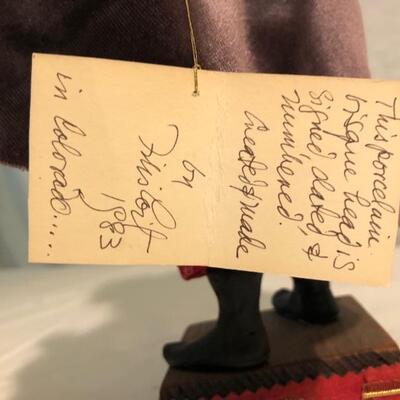 This porcelain
bisque head is
signed, dated, &
numbered.
Created & made
by
1983
in Colorado.....